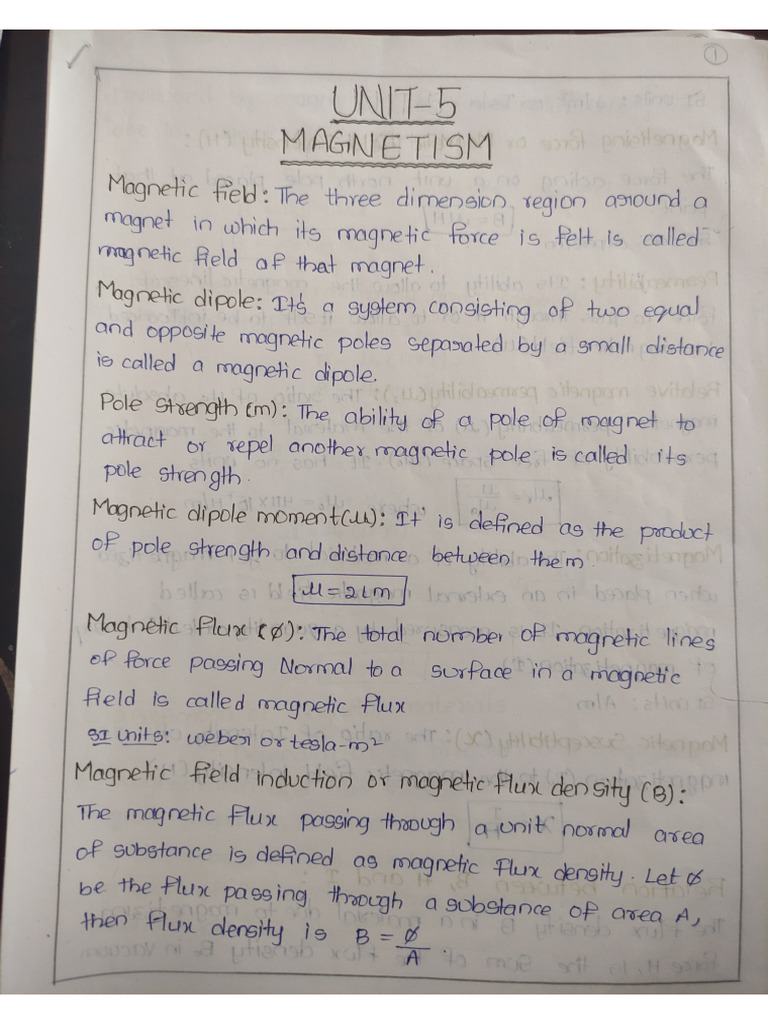 1
UNIT-5
MAGNETISM
Magnetic field: The three dimension region around a
magnet in which its magnetic force is felt is called
magnetic field of that magnet.
Magnetic dipole: It's a system consisting of two equal
and opposite magnetic poles separated by a small distance
is called a magnetic dipole.
Pole strength (m): The ability of a pole of magnet to
attract or repel another magnetic pole is called its
pole strength.
Magnetic dipole moment(μ): It' is defined as the product
of pole strength and distance between them.
μ = 2Lm
Magnetic flux (ϕ): The total number of magnetic lines
of force passing Normal to a surface in a magnetic
field is called magnetic flux
SI units: weber or tesla-m²
Magnetic field induction or magnetic flux density (B):
The magnetic flux passing through a unit normal area
of substance is defined as magnetic flux density. Let ϕ
be the flux passing through a substance of area A,
then flux density is B = ϕ/A